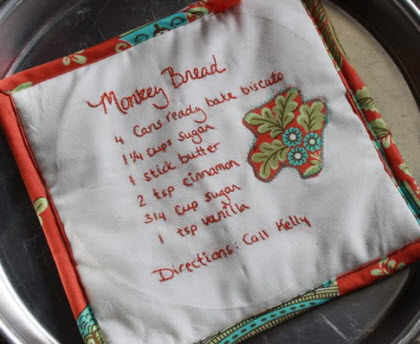 Monkey Bread
4 Cans ready bake biscuts
1 1/4 cups sugar
1 stick butter
2 tsp cinnamon
3/4 cup sugar
1 tsp vanilla
Directions: Call Kelly